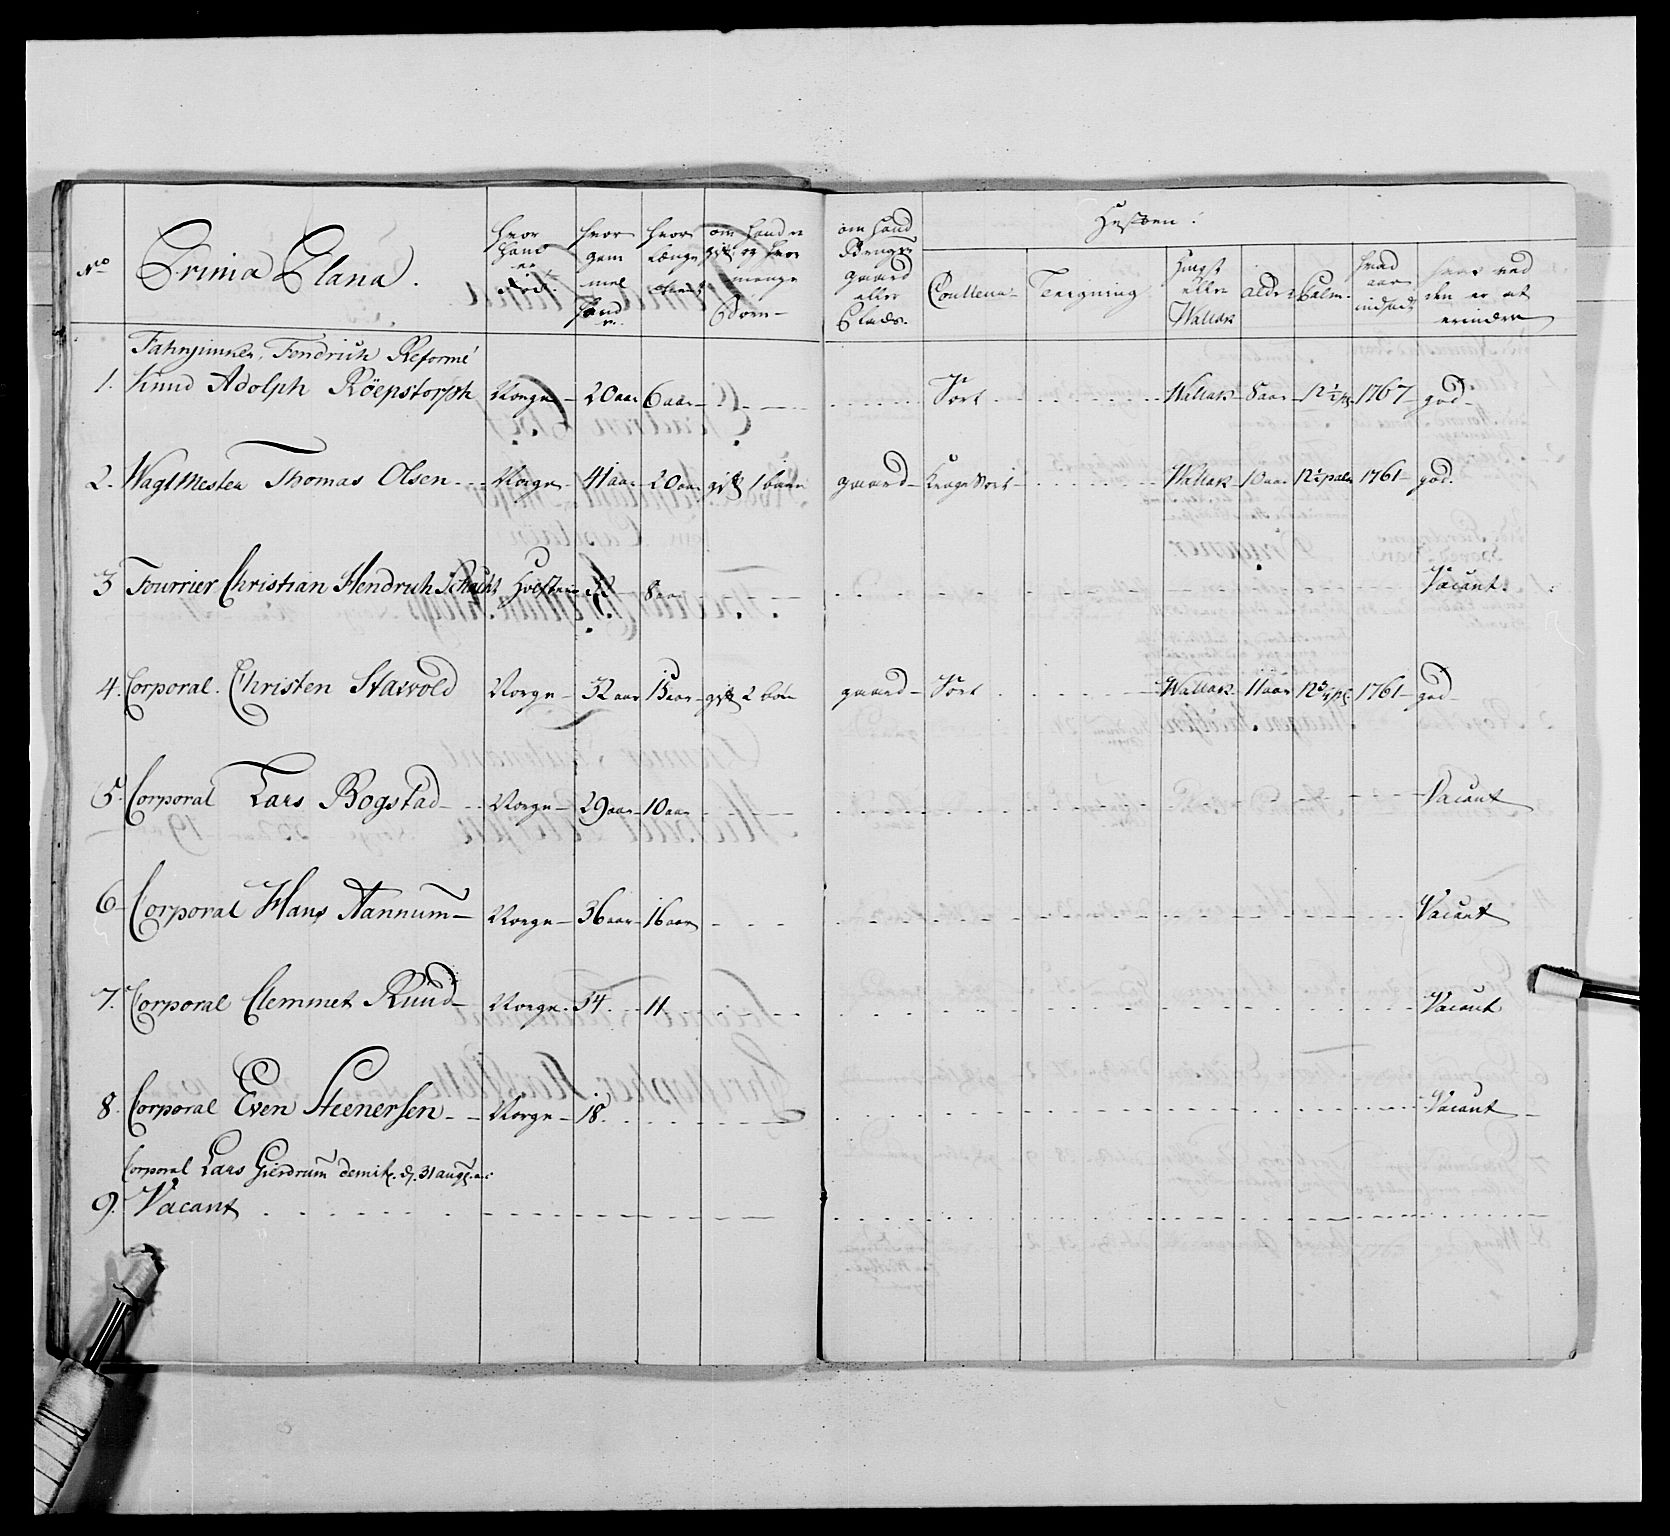 No
Prima Plana.
hvor hand er fød.
hvor gam̄el hand er
hvor længe tient
om hand er gift og hvor mange Børn
om hand Bruger gaard eller Plads.
Hesten:
Couleur
Teigning
Hingst eller Wallak
alder
Palm.
hvad aar indsadt
hvor ved den er at erindre
Fahnjunker, Fendrich Reformé
1. Knud Adolph Röepstorph Norge 20 aar 6 aar Sort Wallak 8 aar 12½ p 1767 god
2. Wagtmester Thomas Olsen Norge 41 aar 20 aar gift 1 barn gaard Sort Wallak 10 aar 12½ palm 1761 god.
3 Fourrier Christian Hendrich Schacht Holsten 8 aar Vacant.
4. Corporal Christen Stavvold Norge 32 aar 13 aar gift 2 børn gaard Sort Wallak 11 aar 12¾ pl 1761 god
5. Corporal Lars Bogstad Norge 29 aar 10 aar Vacant
6 Corporal Hans Aannum Norge 36 aar 16 aar Vacant
7. Corporal Clemmet Ruud Norge 34 11 Vacant
8. Corporal Even Steenersen Norge 18 Vacant
Corporal Lars Gierdrum demit. d. 31 aug. a:
9. Vacant